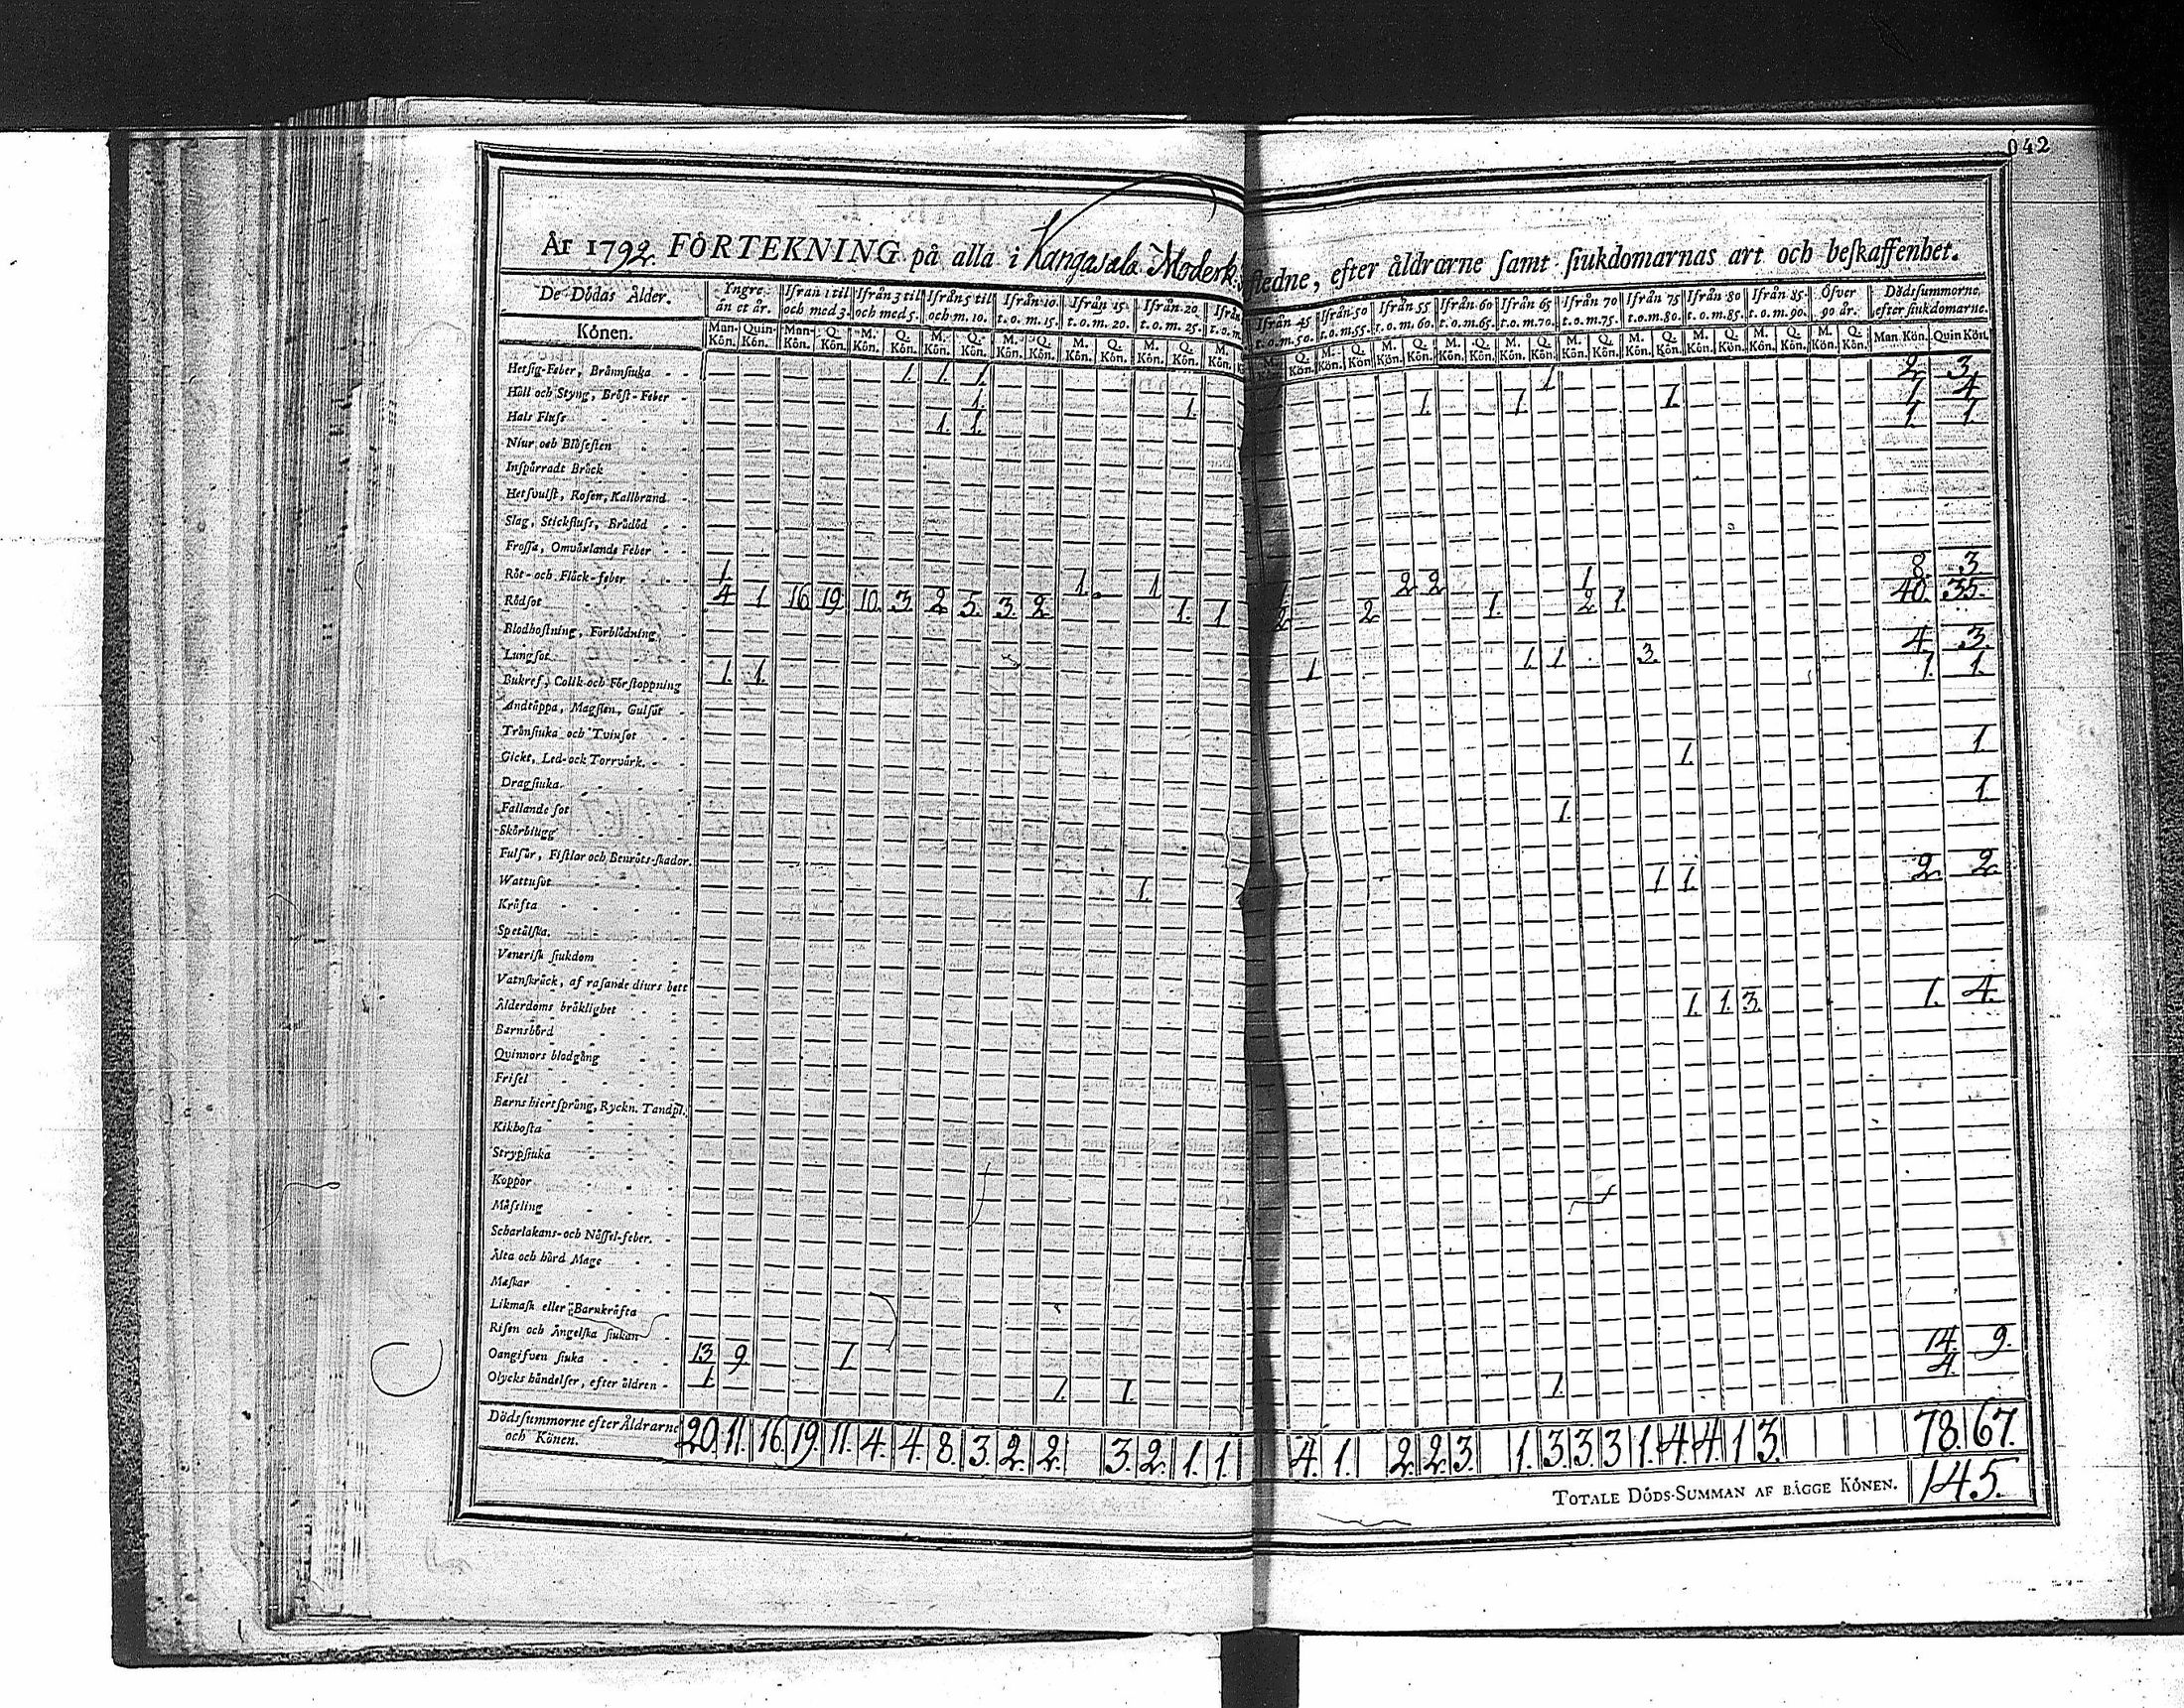 042
År 1792. FÖRTEKNING på alla i Kangasala Moderk: stedne, efter åldrarne samt siukdomarnas art och beskaffenhet.
De Dödas Ålder. Yngre än et år. Ifrån 1 til och med 3. Ifrån 3 til och med 5. Ifrån 5 til och m. 10. Ifrån 10. t. o. m. 15. Ifrån 15. t. o. m. 20. Ifrån 20. t. o. m. 25. Ifrån 45 t. o. m. 50. Ifrån 50 t. o. m. 55. Ifrån 55 t. o. m. 60. Ifrån 60 t. o. m. 65. Ifrån 65 t. o. m. 70. Ifrån 70 t. o. m. 75. Ifrån 75 t. o. m. 80. Ifrån 80 t. o. m. 85. Ifrån 85. t. o. m. 90. Öfver 90 år. Dödssummorne, efter siukdomarne.
Könen. Man-Kön. Quin-Kön. Man-Kön. Q. Kön. M. Kön. Q. Kön. M. Kön. Q. Kön. M. Kön. Q. Kön. M. Kön. Q. Kön. M. Kön. Q. Kön. M. Kön. M. Kön. Q. Kön. M. Kön. Q. Kön. M. Kön. Q. Kön. M. Kön. Q. Kön. M. Kön. Q. Kön. M. Kön. Q. Kön. M. Kön. Q. Kön. M. Kön. Q. Kön. M. Kön. Q. Kön. M. Kön. Q. Kön. Man Kön. Quin Kön.
Hetsig-Feber, Brännsiuka 1. 1. 1. 1 2. 3.
Håll och Styng, Bröst-Feber 1. 1. 1. 1. 1. 1 4
Hals Fluss 1. 1. 1. 1.
Niur och Blåsesten
Inspärradt Bråck
Hetsvulst, Rosen, Kallbrand
Slag, Stickfluss, Brådöd
Frossa, Omväxlande Feber
Röt- och Fläck-feber 1. 1. 1 2 2 1 8. 3
Rödsot 4 1 16 19 10. 3 2 5. 3. 2. 1. 1 2 2 1. 2 1. 40. 35.
Blodhostning, Förblödning
Lungsot 1 1. 1 3. 4. 3.
Bukref, Colik och Förstoppning 1. 1. 1. 1.
Andtäppa, Magsten, Gulsot
Trånsiuka och Tvinsot
Gickt, Led- ock Torrvärk. 1. 1
Dragsiuka
Fallande sot 1. 1.
Skörbiugg
Fulsår, Fistlar och Benröts-skador.
Wattusot 1. 1 1. 2 2.
Kräfta
Spetälska.
Venerisk siukdom
Vatnskräck, af rasande diurs bett
Ålderdoms bräklighet 1. 1. 3. 1. 4.
Barnsbörd
Quinnors blodgång
Frisel
Barns hiertsprång, Ryckn. Tandpl.
Kikhosta
Strypsiuka
Koppor
Mässling
Scharlakans- och Nässel-feber.
Älta och hård Mage
Maskar
Likmask eller Barnkräfta
Risen och Ängelska siukan
Oangifven siuka 13 9. 1 14. 9.
Olycks händelser, efter åldren 1. 1. 1. 1. 4.
Dödssummorne efter Åldrarne och Könen. 20. 11. 16. 19. 11. 4. 4. 8. 3. 2. 2. 3. 2. 1. 1. 4. 1. 2. 2. 3. 1. 3. 3. 3 1. 4. 4. 1 3. 78. 67.
TOTALE DÖDS-SUMMAN AF BÄGGE KÖNEN. 145.